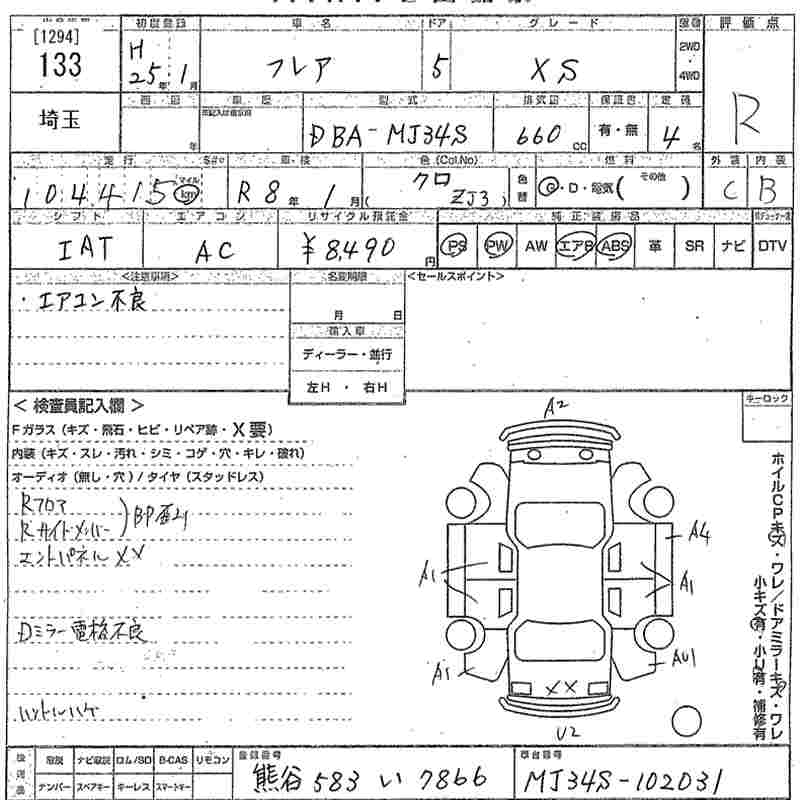 [1294]
133
初度登録
車名
ドア
グレード
型廻
評価点
H
25年1月
フレア
5
XS
2WD
・
4WD
R
埼玉
車歴
型式
排気量
保証書
定員
年
DBA-MJ34S
660cc
有・無
4名
走行
車検
色(Col.No)
色替
燃料
その他
外装
内装
104415
マイル
km
R8年1月
クロ
ZJ3
G・D・電気( )
C
B
シフト
エアコン
リサイクル預託金
純正装備品
IAT
AC
¥8,490円
PS
PW
AW
エアB
ABS
革
SR
ナビ
DTV
<注意事項>
名変期限
<セールスポイント>
・エアコン不良
月 日
輸入車
ディーラー・並行
左H ・ 右H
< 検査員記入欄 >
キーロック
Fガラス(キズ・飛石・ヒビ・リペア跡・X要)
内装(キズ・スレ・汚れ・シミ・コゲ・穴・キレ・破れ)
オーディオ(無し・穴)/タイヤ(スタッドレス)
Rフロア
Rサイドメンバー
エンドパネルXX
Dミラー電格不良
A2
A4
A1
A1
A1
AU1
XX
U2
ホイルCPキズ・ワレ/ドアミラーキズ・ワレ
小キズ有・小U有・補修有
取説
ナビ取説
ロム/SD
B-CAS
リモコン
登録番号
車台番号
ナンバー
スペアキー
キーレス
スマートキー
熊谷 583 い 7866
MJ34S-102031